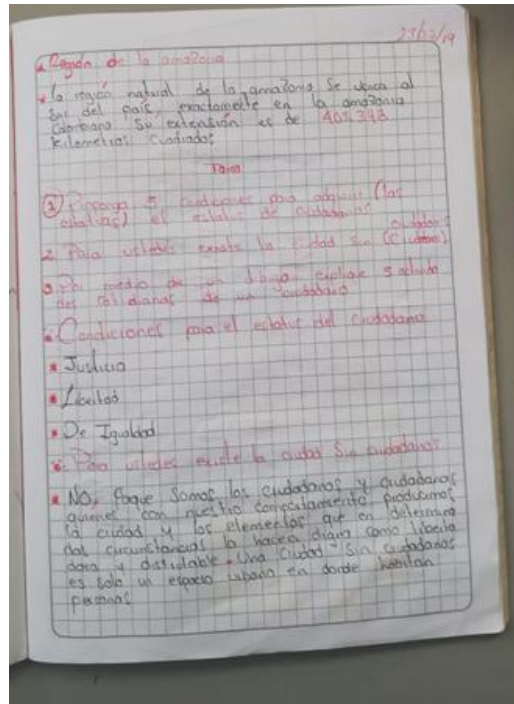 Región de la amazonia
la región natural de la amazonia Se ubica al
Sur del país, exactamente en la amazonia
Colombiana Su extensión es de
Kilometros Cuadrados
Tarea
① Proponga 5 condiciones para adquirir (las
el estatus de ciudadanos
2. Para ustedes existe la ciudad Sin (Ciudadanos)
3 Por medio de un dibujo explique 5 activida
des cotidianas de un ciudadano
Condiciones para el estatus del Ciudadano
Justicia
Libertad
De Igualdad
Para ustedes existe la ciudad Sin ciudadanos
NO, Poque Somos los ciudadanos y ciudadanas
quienes con nuestro comportamiento producimos
la ciudad y los elementos que en determina
das circunstancias la hacen digna como libera
dora y disfrutable. Una Ciudad Sin ciudadanos
es Solo un espacio urbano en donde habitan
personas